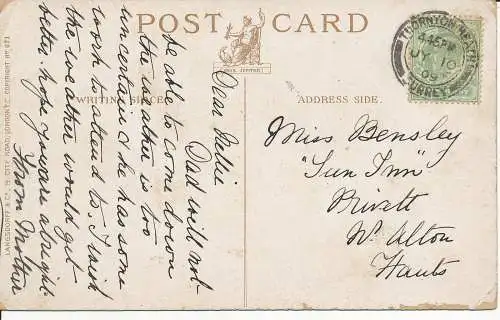 POST CARD
WRITING SPACE
ADDRESS SIDE.
THORNTON HEATH
JY 10
09
SURREY
Dear Nellie
Dad will not
be able to come down
the weather is too
uncertain & he has some
work to attend to. I wish
the weather would get
better, hope you are alright.
From Mother
Miss Bensley
"Sun Inn"
Privett
Nr Alton
Hants
LANGSDORFF & CO., 19, CITY ROAD, LONDON E.C. COPYRIGHT. No 673